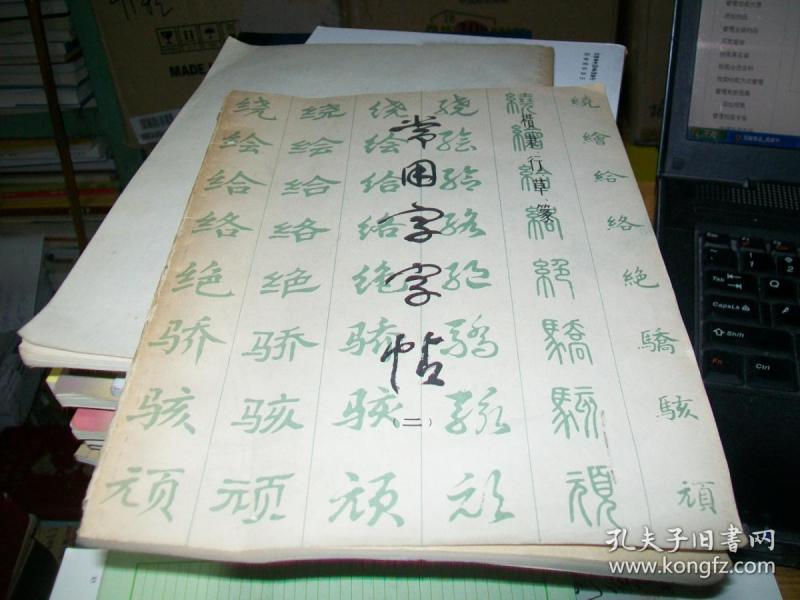 常用字字帖
（二）
楷、隶、行、草、篆
绕 绕 绕 绕 繞 繞
绘 绘 绘 绘 繪 繪
给 给 给 给 給 給
络 络 络 络 絡 絡
绝 绝 绝 绝 絕 絶
骄 骄 骄 驕 驕 驕
骇 骇 骇 骇 駭 駭
顽 顽 顽 顽 頑 頑
MADE
Tab
CapsLk
Shift
Fn
Ctrl
孔夫子旧书网
www.kongfz.com